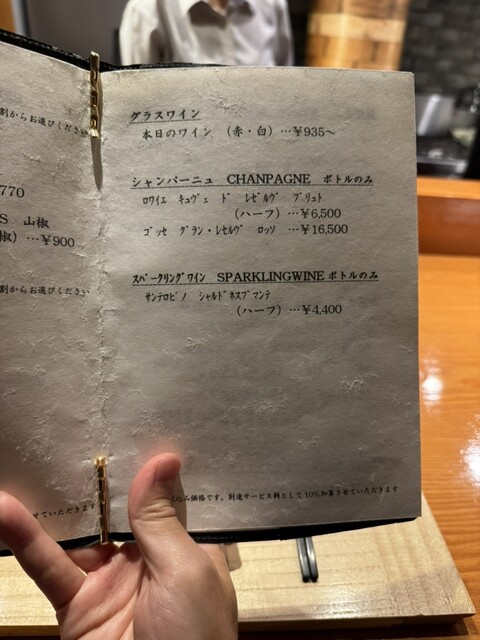 割からお選びください
770
S 山椒
椒) …¥900
割からお選びください
せていただきます
グラスワイン
本日のワイン (赤・白) …¥935～
シャンパーニュ CHANPAGNE ボトルのみ
ﾛﾜｲｴ ｷｭｳﾞｪ ﾄﾞ ﾚｾﾞﾙｳﾞ ﾌﾞﾘｭﾄ
(ハーフ) …¥6,500
ｺﾞｯｾ ｸﾞﾗﾝ・ﾚｾﾞﾙｳﾞ ﾛｯｿ …¥16,500
ｽﾊﾟｰｸﾘﾝｸﾞﾜｲﾝ SPARKLINGWINE ボトルのみ
ｻﾝﾃﾛﾋﾟﾉ ｼｬﾙﾄﾞﾈｽﾌﾟﾏﾝﾃ
(ハーフ) …¥4,400
込み価格です。別途サービス料として10%加算させていただきます